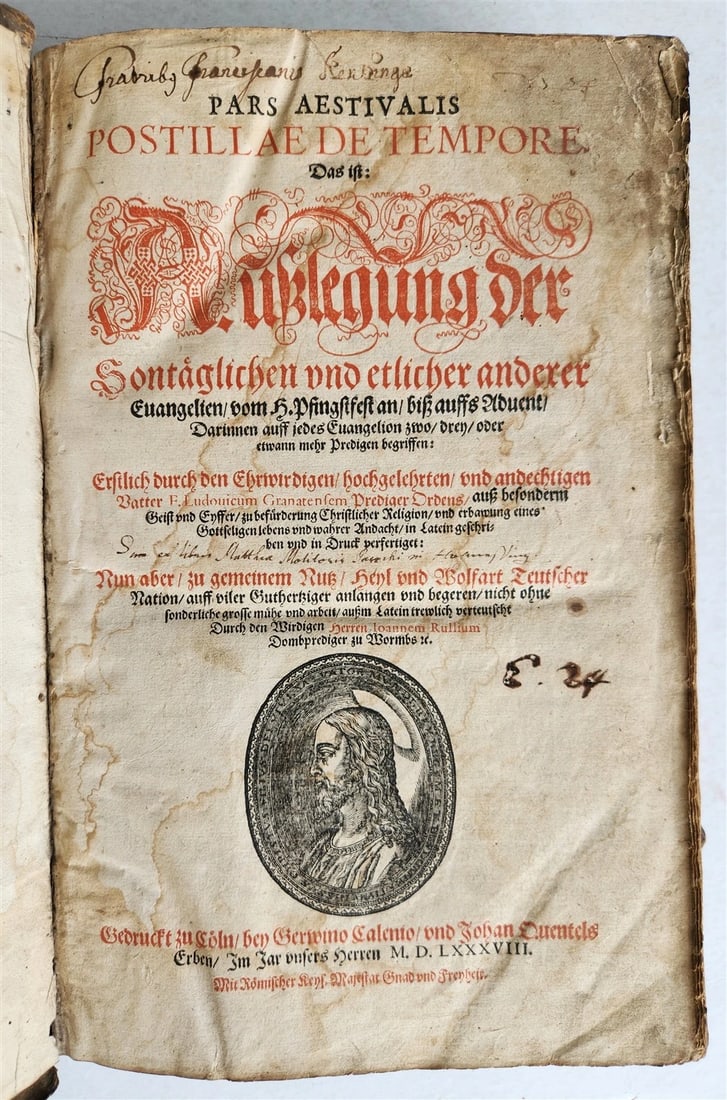 Fratribus Franciscanis
PARS AESTIVALIS
POSTILLAE DE TEMPORE.
Das ist:
Außlegung der
Sontäglichen vnd etlicher anderer
Euangelien/ vom H. Pfingstfest an/ biß auffs Aduent/
Darinnen auff jedes Euangelion zwo/ drey/ oder
etwann mehr Predigen begriffen:
Erstlich durch den Ehrwirdigen/ hochgelehrten/ vnd andechtigen
Vatter F. Ludouicum Granatensem Prediger Ordens/ auß besonderm
Geist vnd Eyffer/ zu befürderung Christlicher Religion/ vnd erbawung eines
Gottseligen lebens vnd wahrer Andacht/ in Latein geschri-
ben vnd in Druck verfertiget:
ex libris Matthiæ Molitoris Parochi in
Nun aber/ zu gemeinem Nutz/ Heyl vnd Wolfart Teutscher
Nation/ auff viler Guthertziger anlangen vnd begeren/ nicht ohne
sonderliche grosse mühe vnd arbeit/ außm Latein trewlich verteutscht
Durch den Wirdigen Herren Ioannem Russium
Dombprediger zu Wormbs ꝛc.
E. 24
Gedruckt zu Cöln/ bey Gerwino Calenio/ vnd Johan Quentels
Erben/ Im Jar vnsers Herren M. D. LXXXVIII.
Mit Römischer Keys. Maiestat Gnad vnd Freyheit.